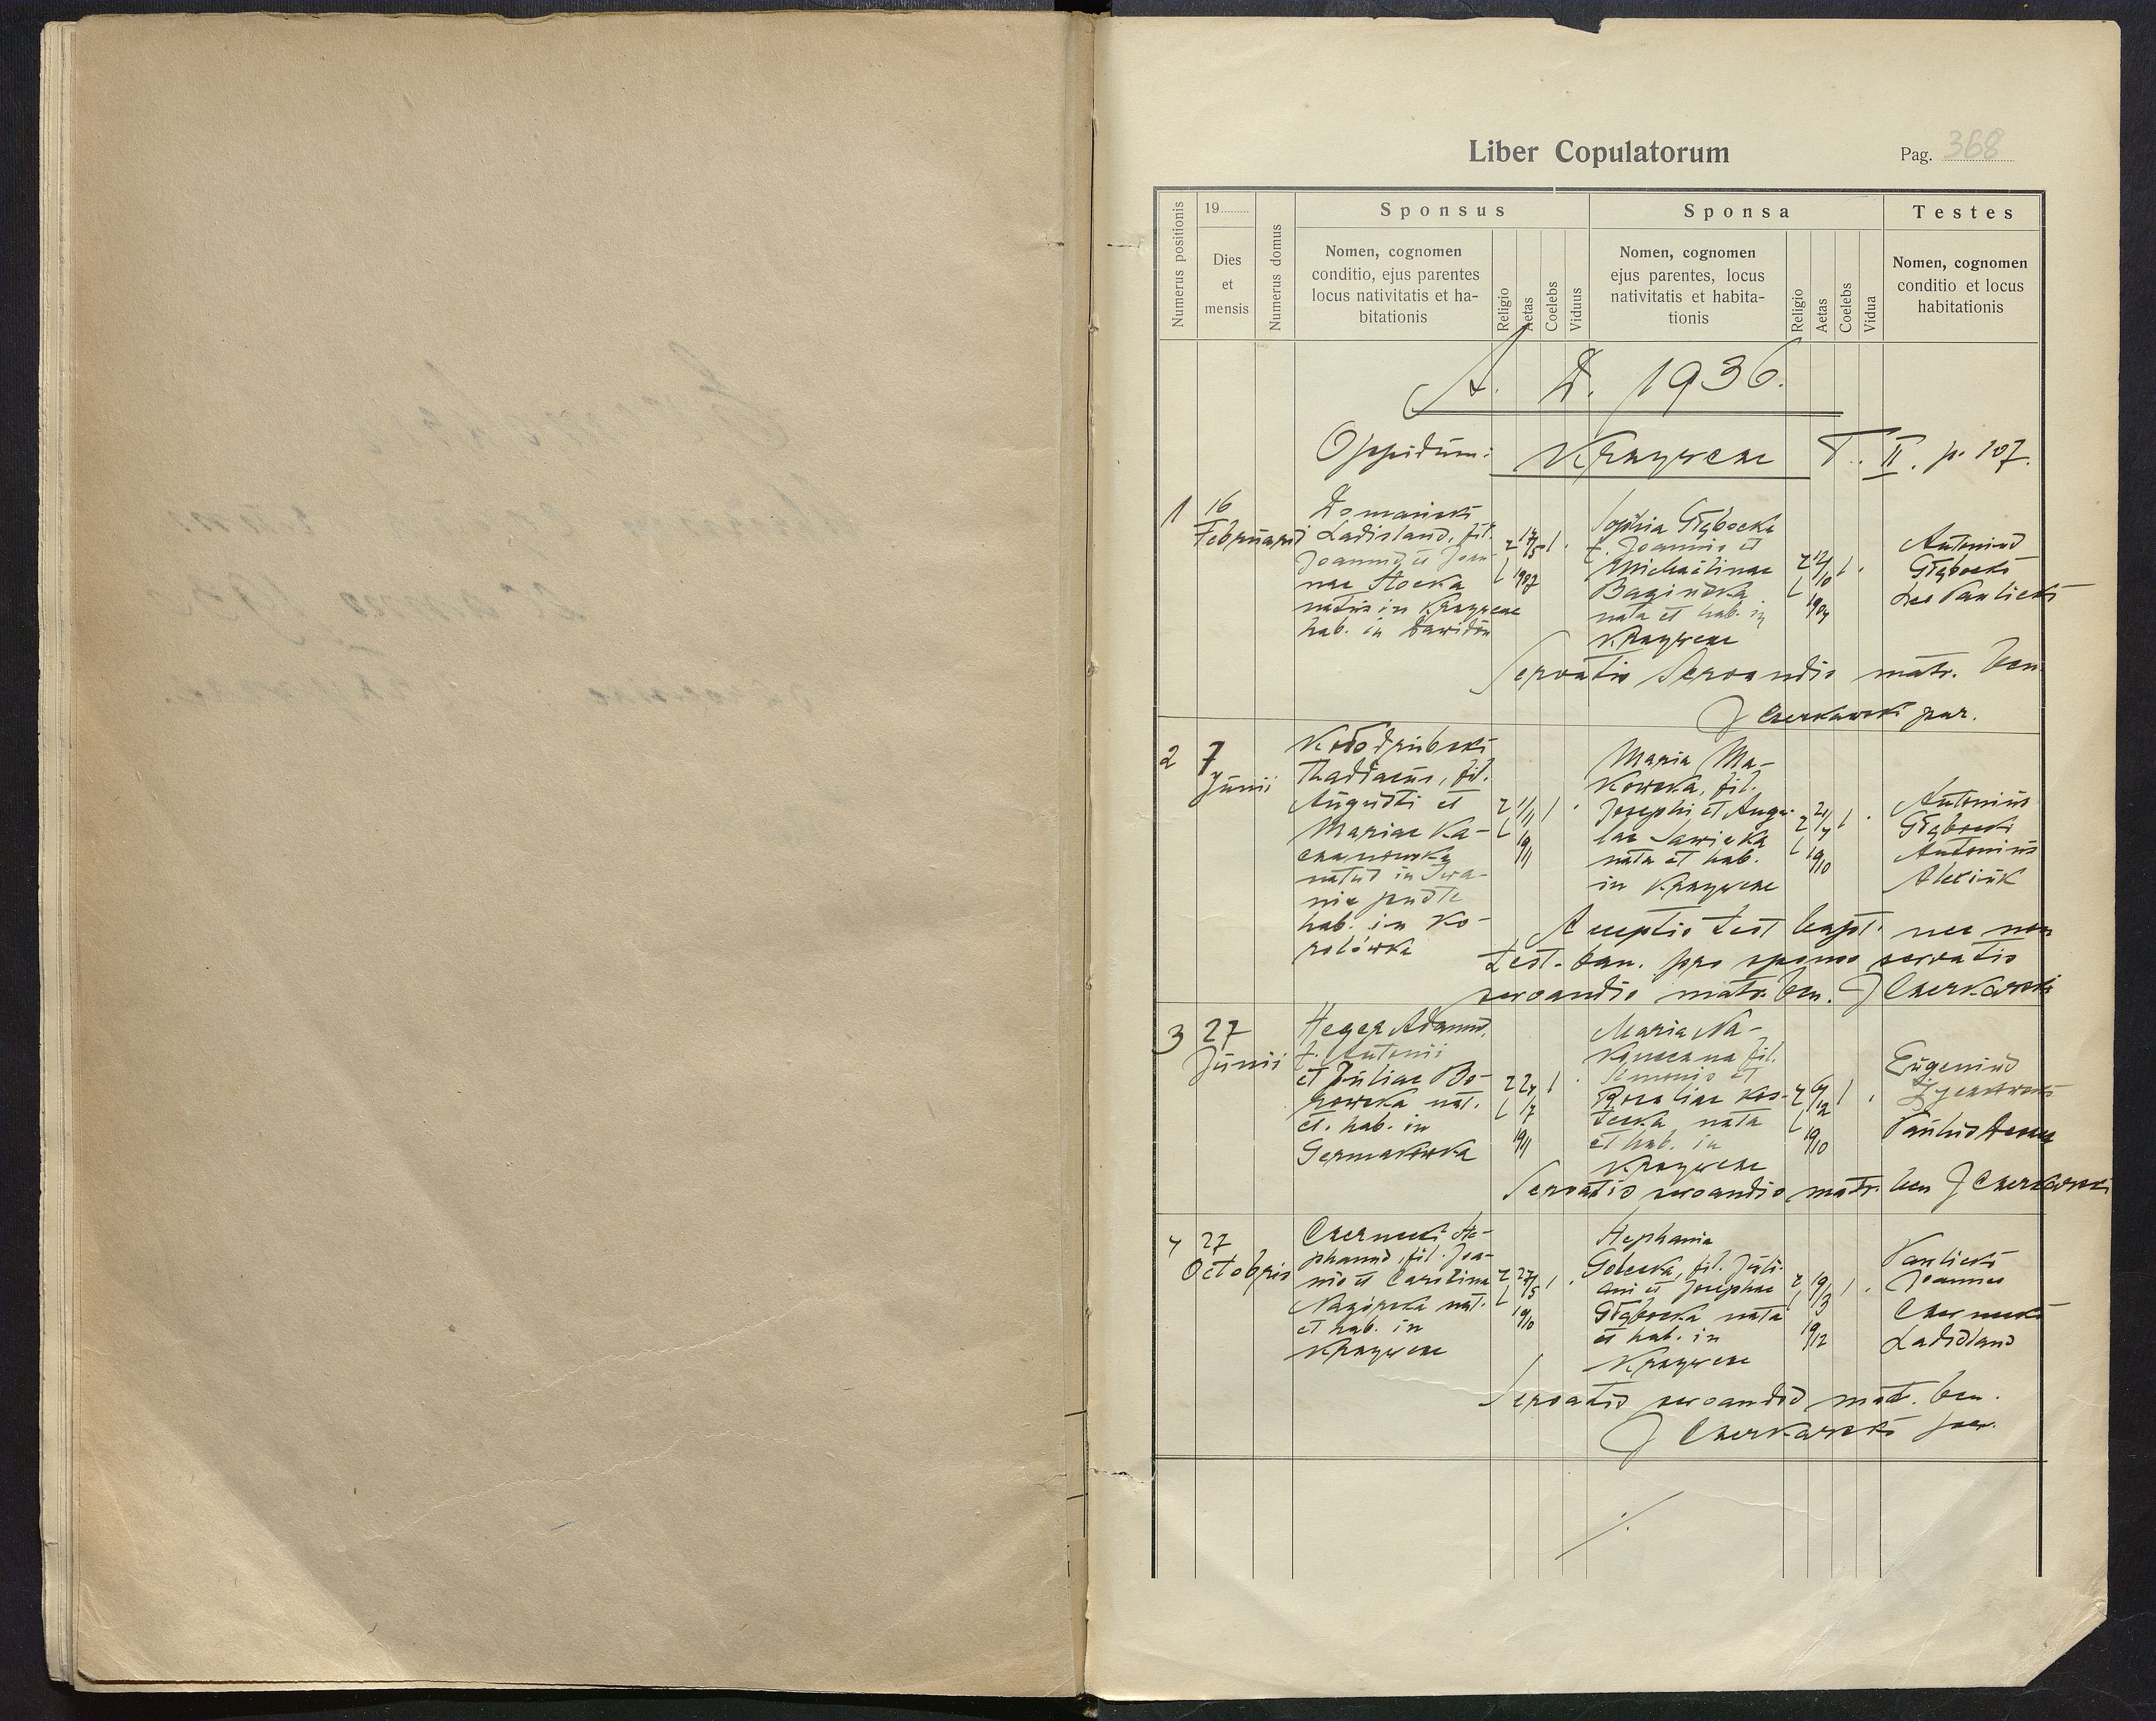 Liber Copulatorum
Pag. 368
Numerus positionis
19
Dies
et
mensis
Numerus domus
Sponsus
Nomen, cognomen
conditio, ejus parentes
locus nativitatis et ha-
bitationis
Religio
Aetas
Coelebs
Viduus
Sponsa
Nomen, cognomen
ejus parentes, locus
nativitatis et habita-
tionis
Religio
Aetas
Coelebs
Vidua
Testes
Nomen, cognomen
conditio et locus
habitationis
A. D. 1936.
Oppidum: Krzywcze T. II. p. 107.
1
16
Februarii
Domaniecki
Ladislaus, fil.
Joannis et Joan-
nae Hocka
natus in Krzywcze
hab. in
r l
17/5
1907
1
Sophia Głębocka
f. Joannis et
Michaëlinae
Bagińska
nata et hab. in
Krzywcze
r l
12/10
1904
1
Antonius
Głębocki
Leo Pawlicki
Servatis servandis matr. ben.
J Czerkawski par.
2
7
Junii
Kołodziński
Thaddaeus, fil.
Augusti et
Mariae Ka-
natus in Iwa-
nie puste
hab. in Ko-
rolówka
r l
11/11
1911
1
Maria Ma-
kowska, fil.
Josephi et Ange-
lae Sawicka
nata et hab.
in Krzywcze
r l
1910
1
Antonius
Głębocki
Antonius
Aleksiuk
Acceptis test bapt. nec non
test. ban. pro sponso servatis
servandis matr. ben. J Czerkawski
3
27
Junii
Heger Adamus,
f. Antonii
et Juliae Bo-
rowska nat.
et. hab. in
Germakówka
r l
24/7
1911
1
Maria Na-
fil.
Simonis et
Rosaliae Kos-
tecka nata
et hab. in
Krzywcze
r l
6/12
1910
1
Eugenius
Paulus
Servatis servandis matr. ben J Czerkawski
4
27
Octobris
Czernecki Ste-
phanus, fil. Joa-
nis et Carolina
Nagórska nat.
et hab. in
Krzywcze
r l
27/5
1910
1
Stephania
Golecka, fil. Juli-
ani et Josephae
Głębocka nata
et hab. in
Krzywcze
r l
19/3
1912
1
Pawlicki
Joannes
Czernecki
Ladislaus
Servatis servandis matr. ben.
J Czerkawski par.